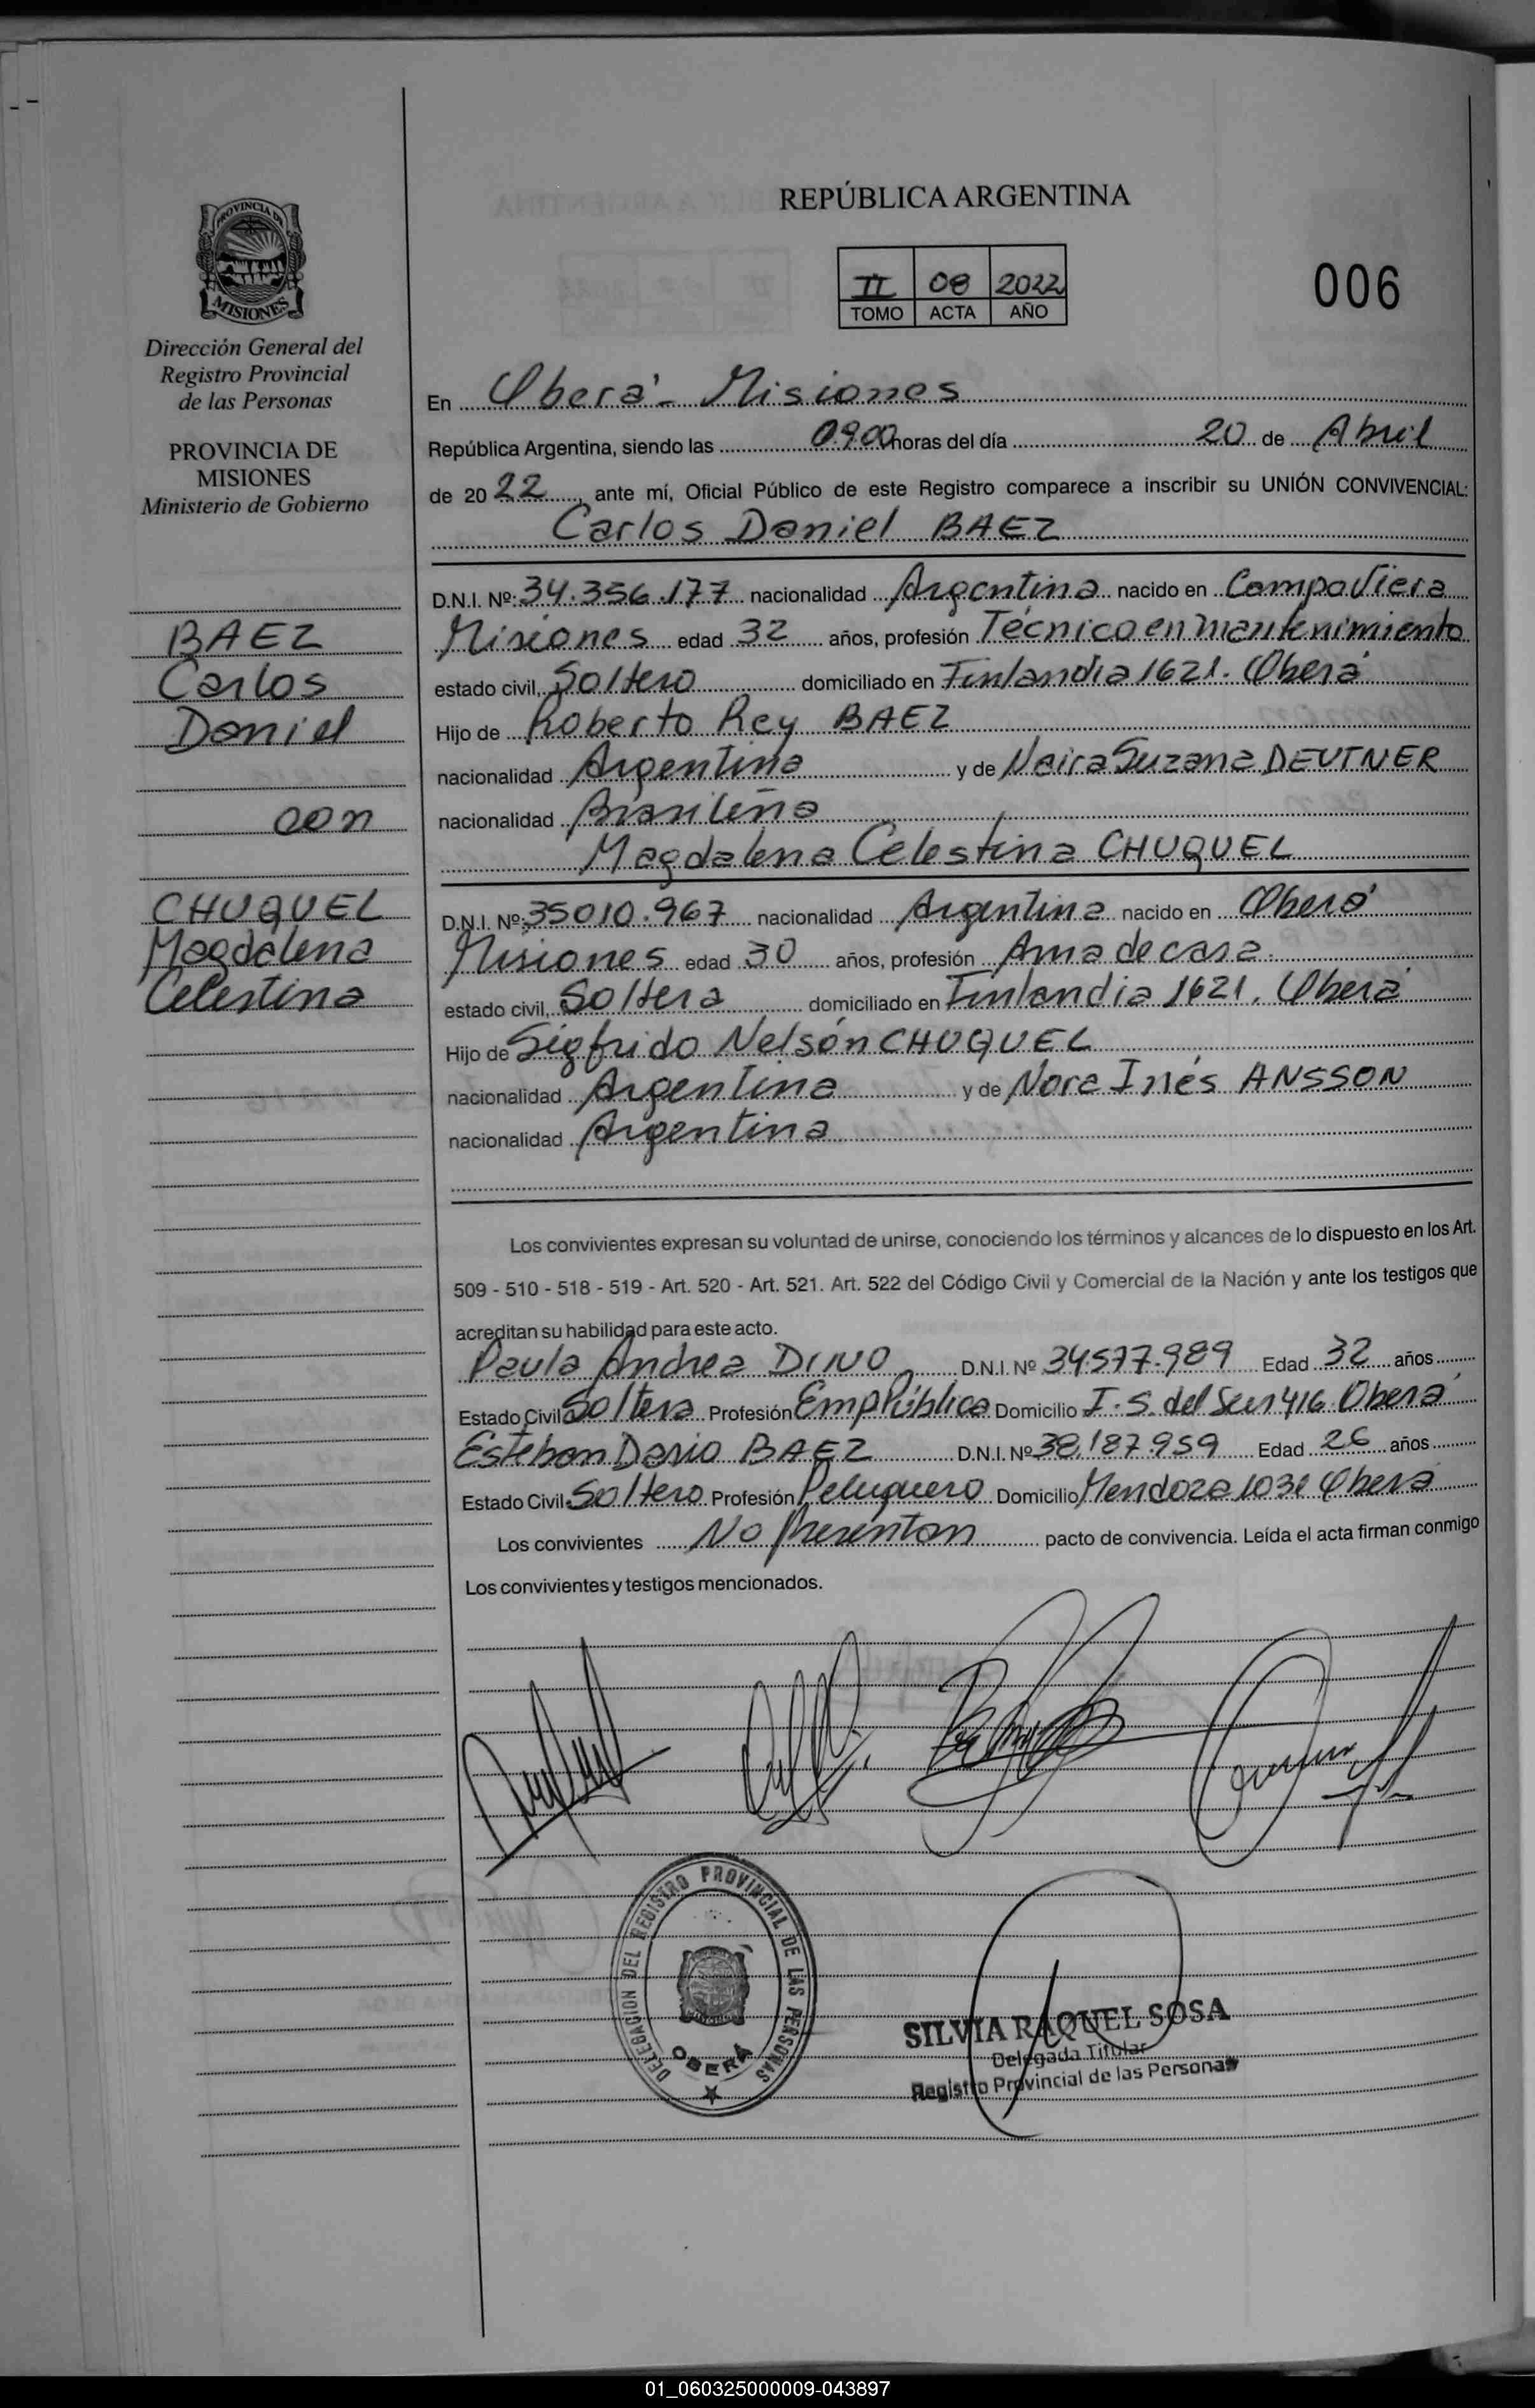 REPÚBLICA ARGENTINA
PROVINCIA DE
MISIONES
II 08 2022
TOMO ACTA AÑO
006
Dirección General del
Registro Provincial
de las Personas
PROVINCIA DE
MISIONES
Ministerio de Gobierno
En Oberá - Misiones
República Argentina, siendo las 09.00 horas del día 20 de Abril
de 20 22, ante mí, Oficial Público de este Registro comparece a inscribir su UNIÓN CONVIVENCIAL:
Carlos Daniel BAEZ
D.N.I. Nº: 34.356.177 nacionalidad Argentina nacido en Campo Viera
Misiones edad 32 años, profesión Técnico en mantenimiento
estado civil, Soltero domiciliado en Finlandia 1621. Oberá
Hijo de Roberto Rey BAEZ
nacionalidad Argentina y de Neira Suzana DEUTNER
nacionalidad Brasileña
Magdalena Celestina CHUQUEL
D.N.I. Nº: 35010.967 nacionalidad Argentina nacido en Oberá
Misiones edad 30 años, profesión Ama de casa.
estado civil, Soltera domiciliado en Finlandia 1621. Oberá
Hijo de Sigfrido Nelsón CHUQUEL
nacionalidad Argentina y de Nora Inés ANSSON
nacionalidad Argentina
BAEZ
Carlos
Daniel
con
CHUQUEL
Magdalena
Celestina
Los convivientes expresan su voluntad de unirse, conociendo los términos y alcances de lo dispuesto en los Art.
509 - 510 - 518 - 519 - Art. 520 - Art. 521. Art. 522 del Código Civil y Comercial de la Nación y ante los testigos que
acreditan su habilidad para este acto.
Paula Andrea D.N.I. Nº 34.577.989 Edad 32 años
Estado Civil Soltera Profesión Emp Pública Domicilio I. S. del Sur 416 Oberá
Esteban Dario BAEZ D.N.I. Nº 38.187.959 Edad 26 años
Estado Civil Soltero Profesión Peluquero Domicilio Mendoza 1031 Oberá
Los convivientes No Presentan pacto de convivencia. Leída el acta firman conmigo
Los convivientes y testigos mencionados.
DELEGACION DEL REGISTRO PROVINCIAL DE LAS PERSONAS
OBERÁ
SILVIA RAQUEL SOSA
Delegada Titular
Registro Provincial de las Personas
01_060325000009-043897